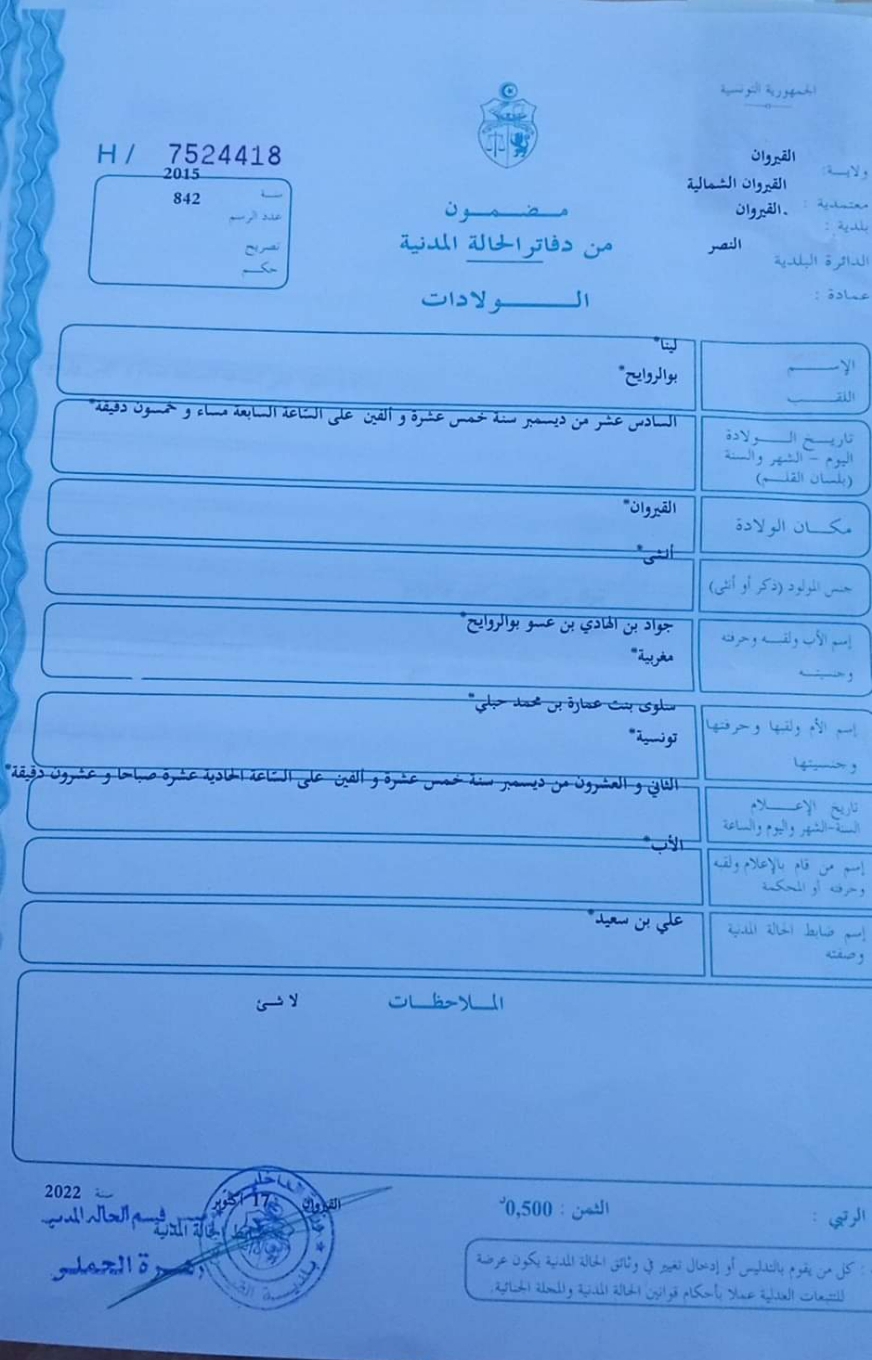 الجمهورية التونسية
ولاية: القيروان
معتمدية : القيروان الشمالية
بلدية : القيروان.
الدائرة البلدية النصر
عمادة :
H/ 7524418
سنة 2015
عدد الرسم 842
تصريح
حكم
مضمون
من دفاتر الحالة المدنية
الولادات
الإسم لينا*
اللقب بوالروايح*
تاريخ الولادة السادس عشر من ديسمبر سنة خمس عشرة و ألفين على السّاعة السابعة مساء و خمسون دقيقة*
اليوم - الشهر والسنة
(بلسان القلم)
مكان الولادة القيروان*
جنس المولود (ذكر أو أنثى) أنثى*
إسم الأب ولقبه وحرفته جواد بن الهادي بن عسو بوالروايح*
وجنسيته مغربية*
إسم الأم ولقبها وحرفتها سلوى بنت عمارة بن محمد حبلي*
وجنسيتها تونسية*
تاريخ الإعلام الثاني و العشرون من ديسمبر سنة خمس عشرة و ألفين على السّاعة الحادية عشرة صباحا و عشرون دقيقة*
السنة-الشهر واليوم والساعة
إسم من قام بالإعلام ولقبه الأب*
وحرفته أو المحكمة
إسم ضابط الحالة المدنية علي بن سعيد*
وصفته
الملاحظات لا شئ
القيروان 17 أكتوبر سنة 2022
ضابط الحالة المدنية
قسم الحالة المدنية
الرتبي :
الثمن : 0,500د
: كل من يقوم بالتدليس أو إدخال تغيير في وثائق الحالة المدنية يكون عرضة
للتتبعات العدلية عملا بأحكام قوانين الحالة المدنية والمجلة الجنائية.